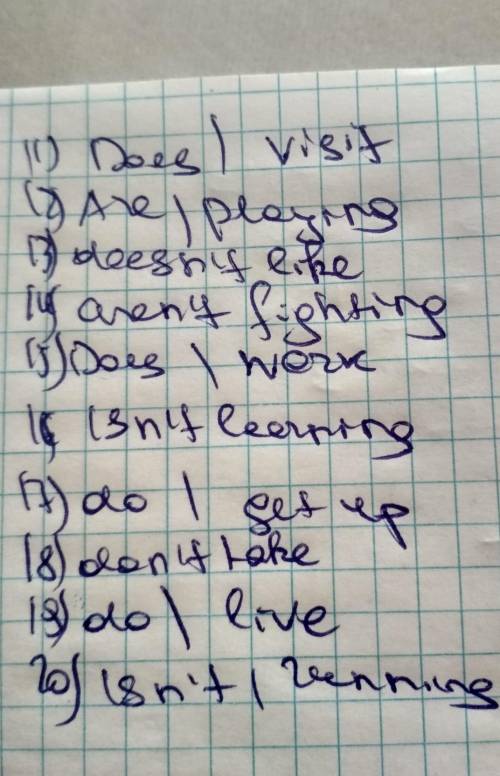 11) Does / visit
12) Are / playing
13) doesn't like
14) aren't fighting
15) Does / work
16 isn't learning
17) do / get up
18) don't take
19) do / live
20) isn't / running